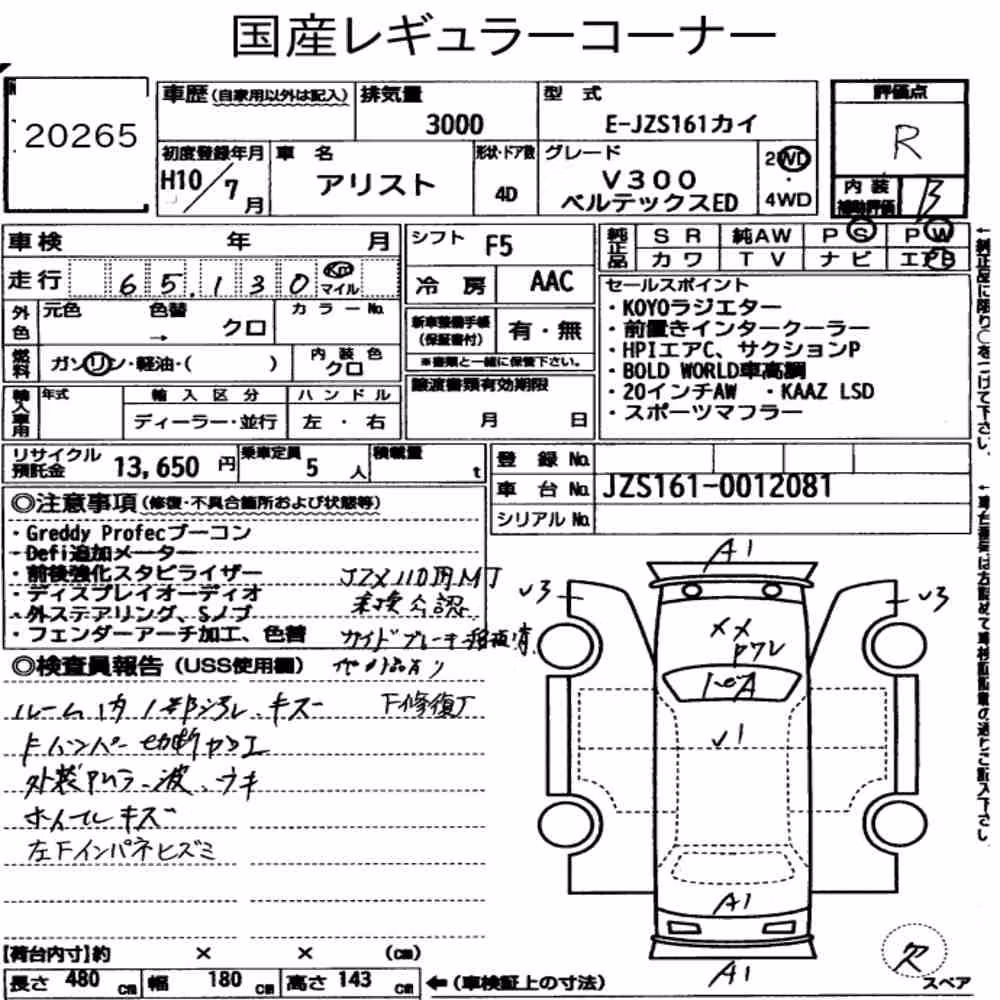 国産レギュラーコーナー
20265
車歴(自家用以外は記入)
排気量 3000
型式 E-JZS161カイ
評価点 R
初度登録年月 H10/7月
車名 アリスト
形状・ドア数 4D
グレード V300 ベルテックスED
2WD・4WD
内装補助評価 B
車検 年 月
シフト F5
純正品 SR 純AW PS PW
カワ TV ナビ エアB
走行 65,130 Km マイル
冷房 AAC
外色 元色 色替 → クロ カラーNo.
新車整備手帳(保証書付) 有・無
※書類と一緒に保管下さい。
燃料 ガソリン・軽油・( ) 内装色 クロ
輸入車用 年式 輸入区分 ディーラー・並行 ハンドル 左・右
譲渡書類有効期限 月 日
セールスポイント
・KOYOラジエター
・前置きインタークーラー
・HPIエアC、サクションP
・BOLD WORLD車高調
・20インチAW ・KAAZ LSD
・スポーツマフラー
リサイクル預託金 13,650円 乗車定員 5人 積載量 t
登録No.
車台No. JZS161-0012081
シリアルNo.
◎注意事項(修復・不具合箇所および状態等)
・Greddy Profecブーコン
・Defi追加メーター
・前後強化スタビライザー
・ディスプレイオーディオ
・外ステアリング、Sノブ
・フェンダーアーチ加工、色替
JZX110用MT
車検公認
◎検査員報告(USS使用欄)
ルーム内
キズ
F修復
Fバンパー切断加工
外装
波、ウキ
ホイールキズ
左Fインパネヒズミ
A1
√3
√3
XX
トビA
√1
A1
A1
欠
スペア
【荷台内寸】約 × × (cm)
長さ 480cm 幅 180cm 高さ 143cm ←(車検証上の寸法)
←純正品に限り○をつけて下さい。